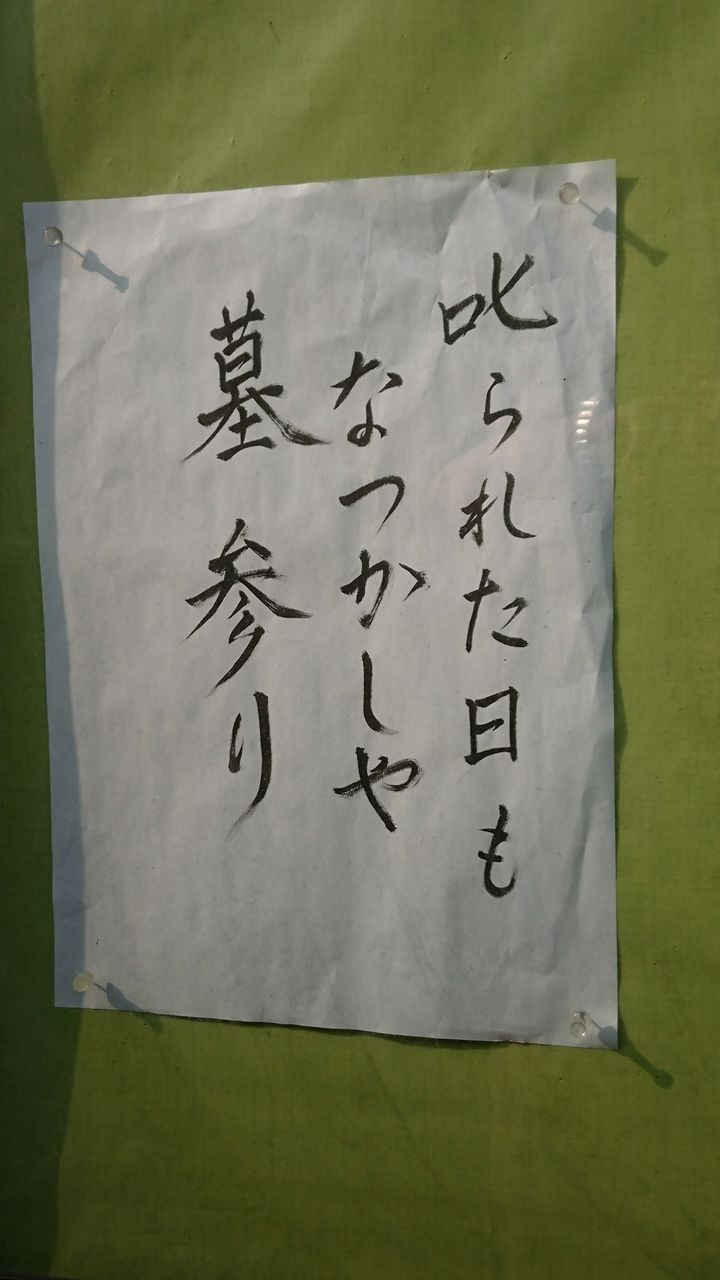 叱られた日も
なつかしや
墓参り